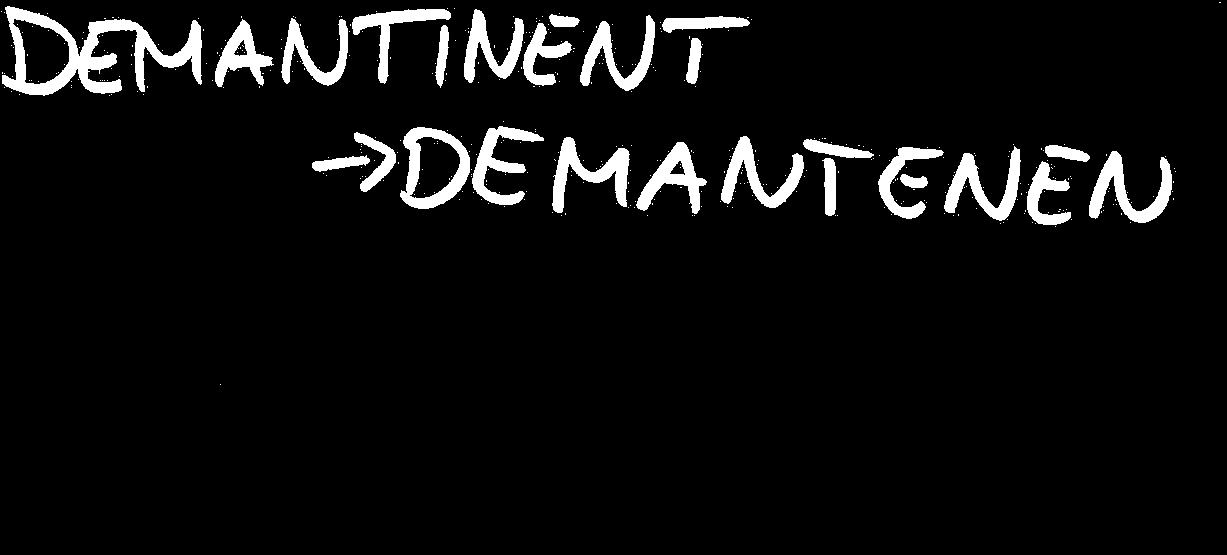 DEMANTINENT
→DEMANTENEN